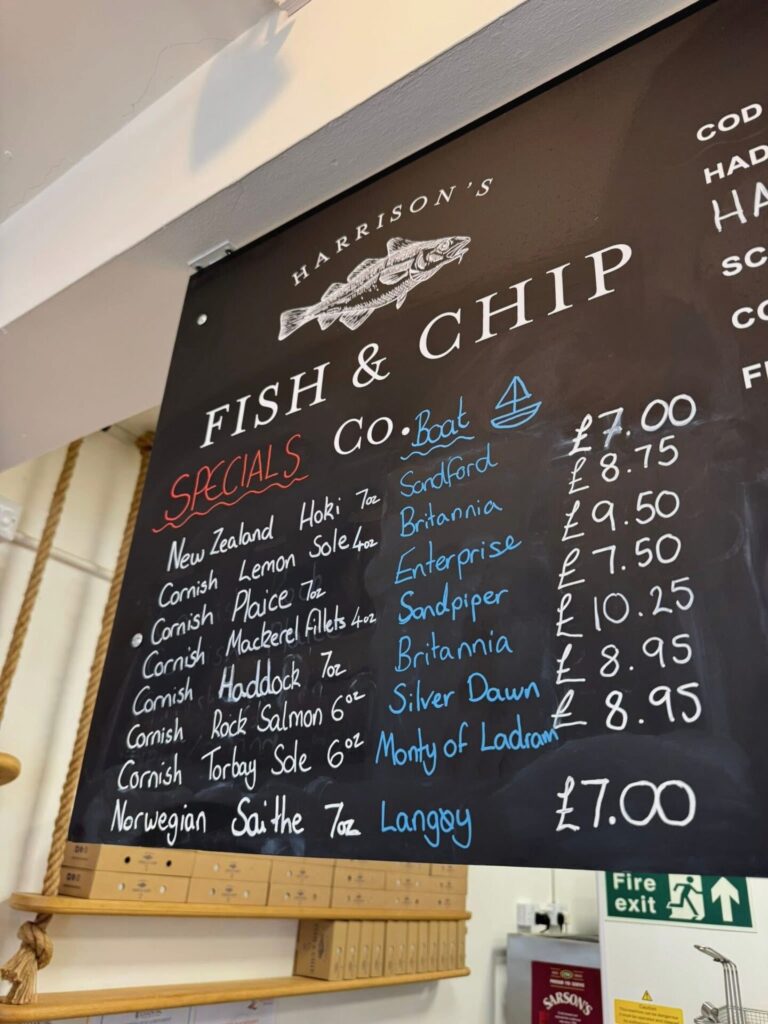 HARRISON'S
FISH & CHIP
Co.
SPECIALS Boat
New Zealand Hoki 7oz Sandford £7.00
Cornish Lemon Sole 4oz Britannia £8.75
Cornish Plaice 7oz Enterprise £9.50
Cornish Mackerel fillets 4oz Sandpiper £7.50
Cornish Haddock 7oz Britannia £10.25
Cornish Rock Salmon 6oz Silver Dawn £8.95
Cornish Torbay Sole 6oz Monty of Ladram £8.95
Norwegian Saithe 7oz Langøy £7.00
COD
HAD
HA
SC
CO
F
Fire exit
SARSON'S
Caution